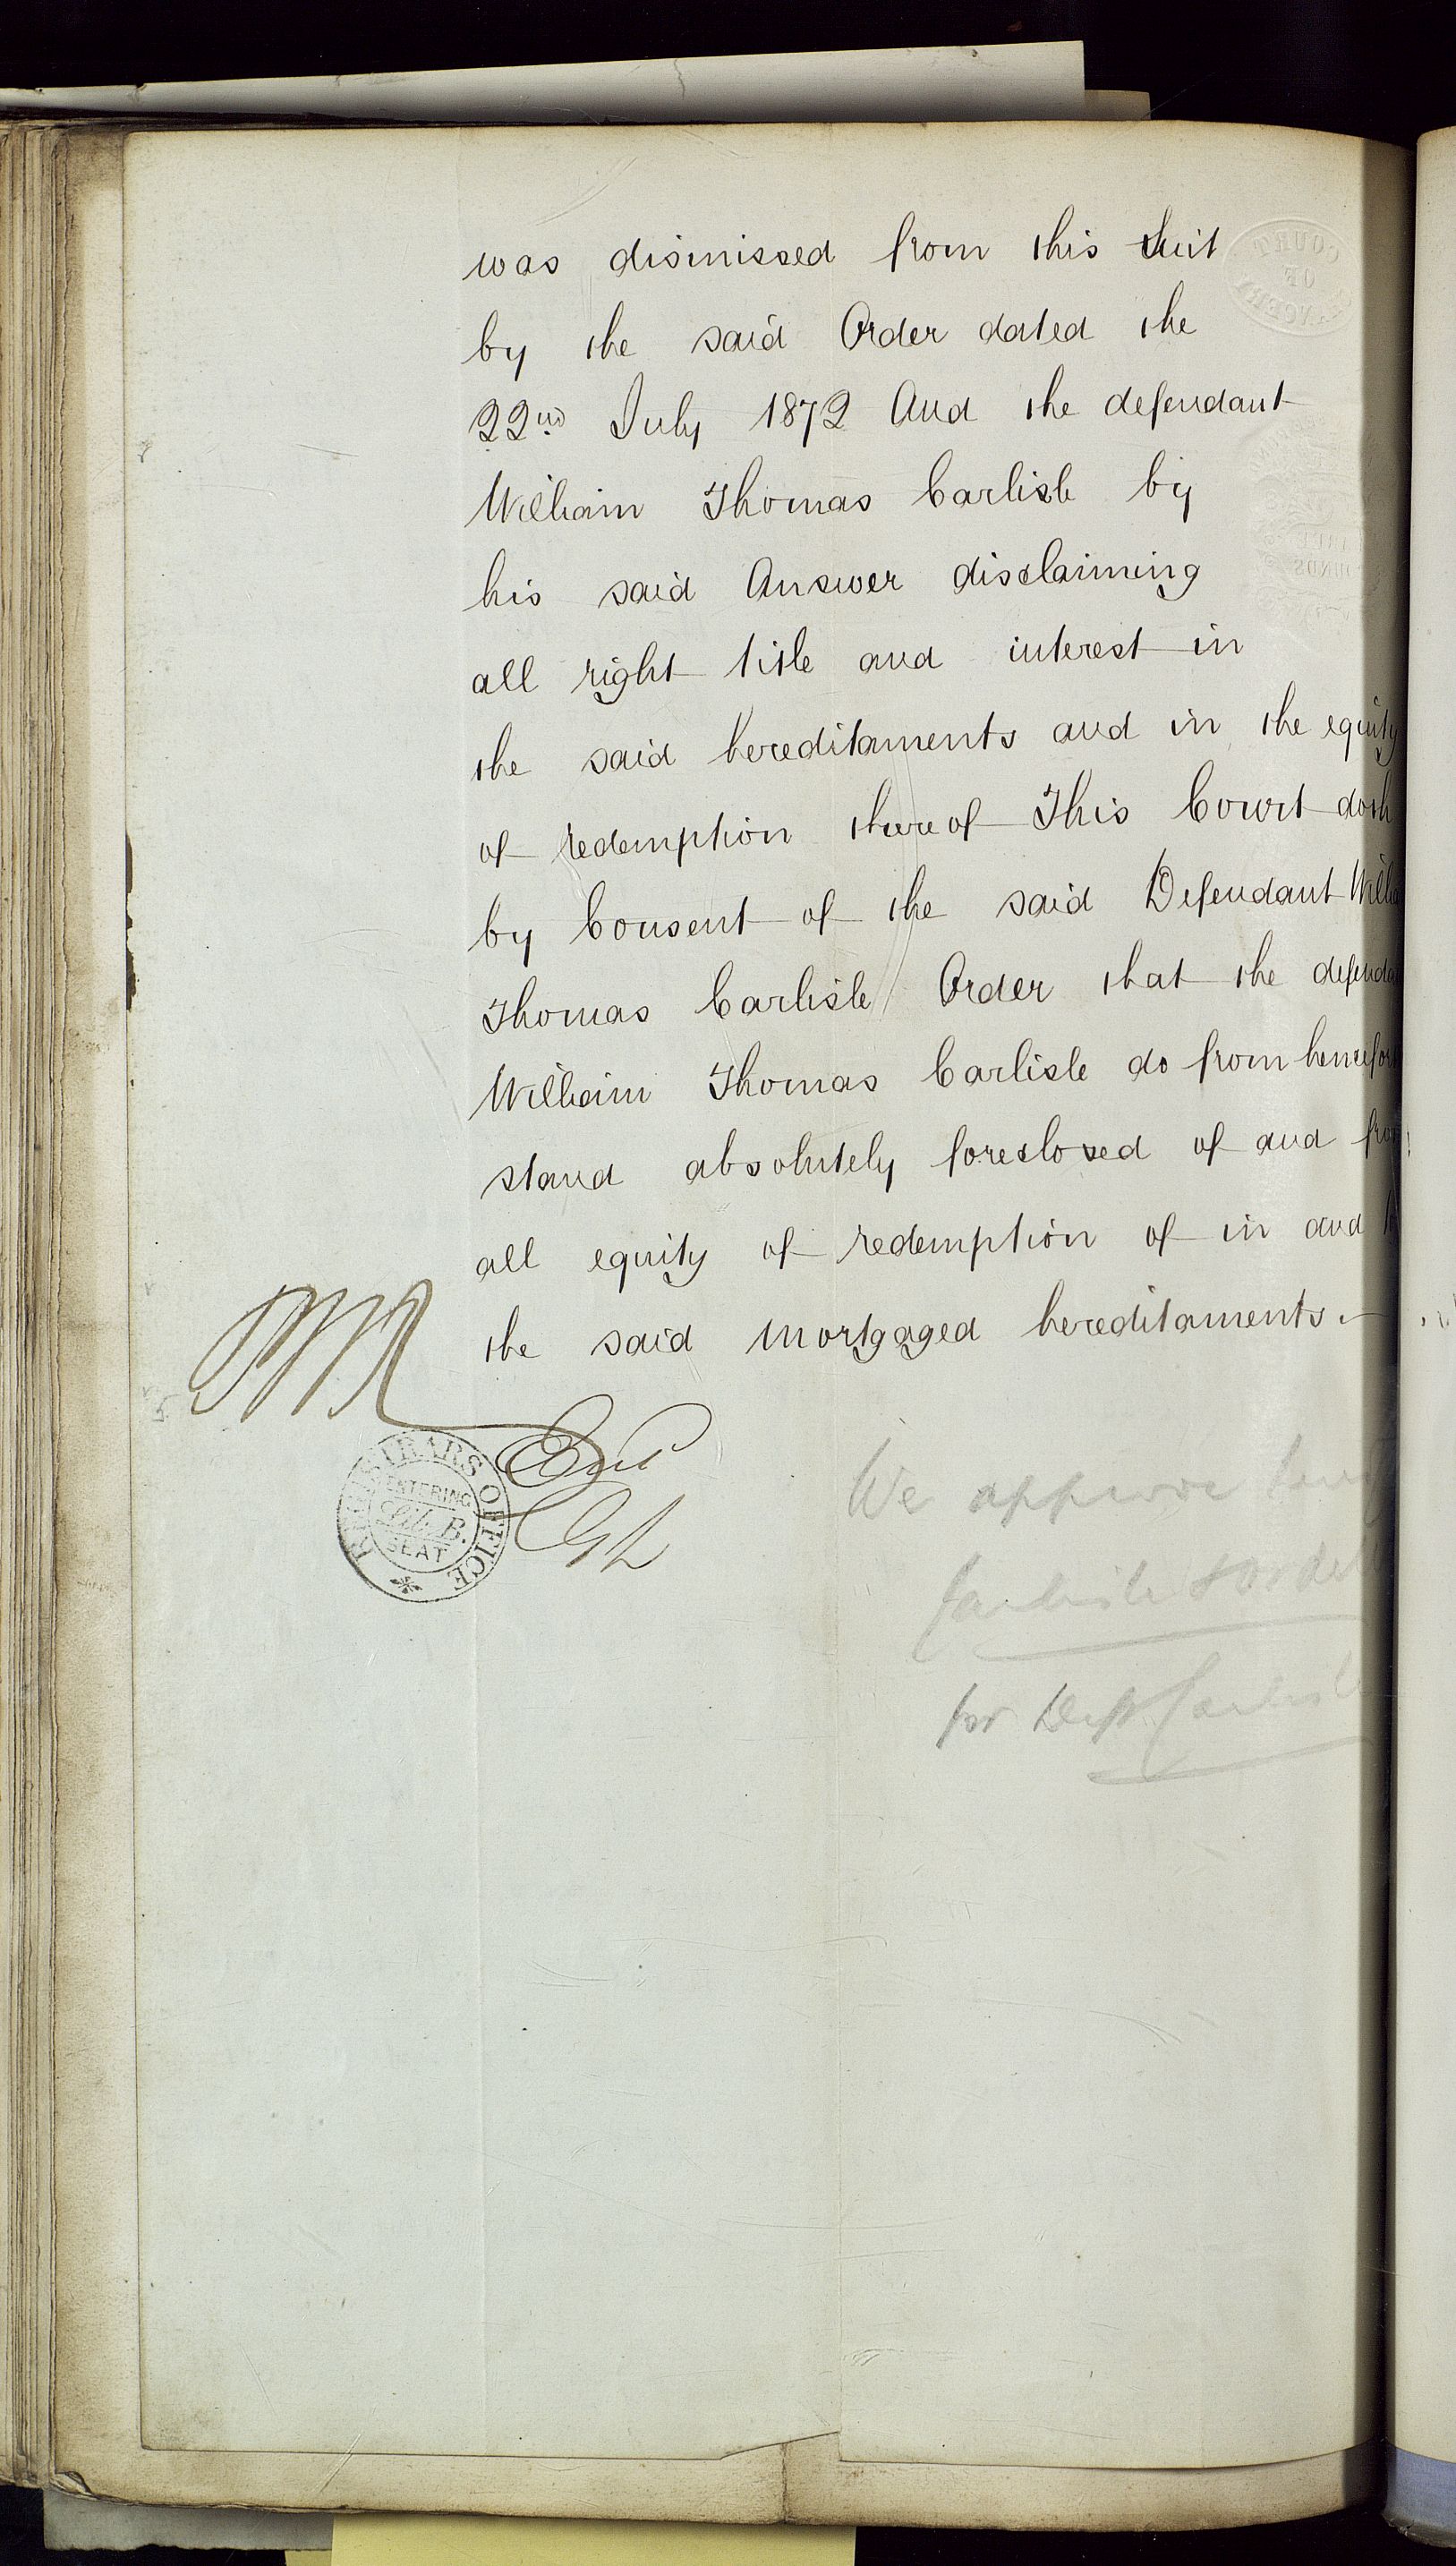 was dismissed from this Suit
by the said Order dated the
22nd July 1872 And the defendant
William Thomas Carlisle by
his said Answer disclaiming
all right title and interest in
the said hereditaments and in the equity
of redemption thereof This Court doth
by Consent of the said Defendant Willia
Thomas Carlisle Order that the defenda
William Thomas Carlisle do from hencefor
stand absolutely foreclosed of and fro
all equity of redemption of in and
the said mortgaged hereditaments.
COURT
OF
REGISTRARS OFFICE
ENTERING
Lib. B.
SEAT
We approve
Carlisle &
for Deft Carlisle